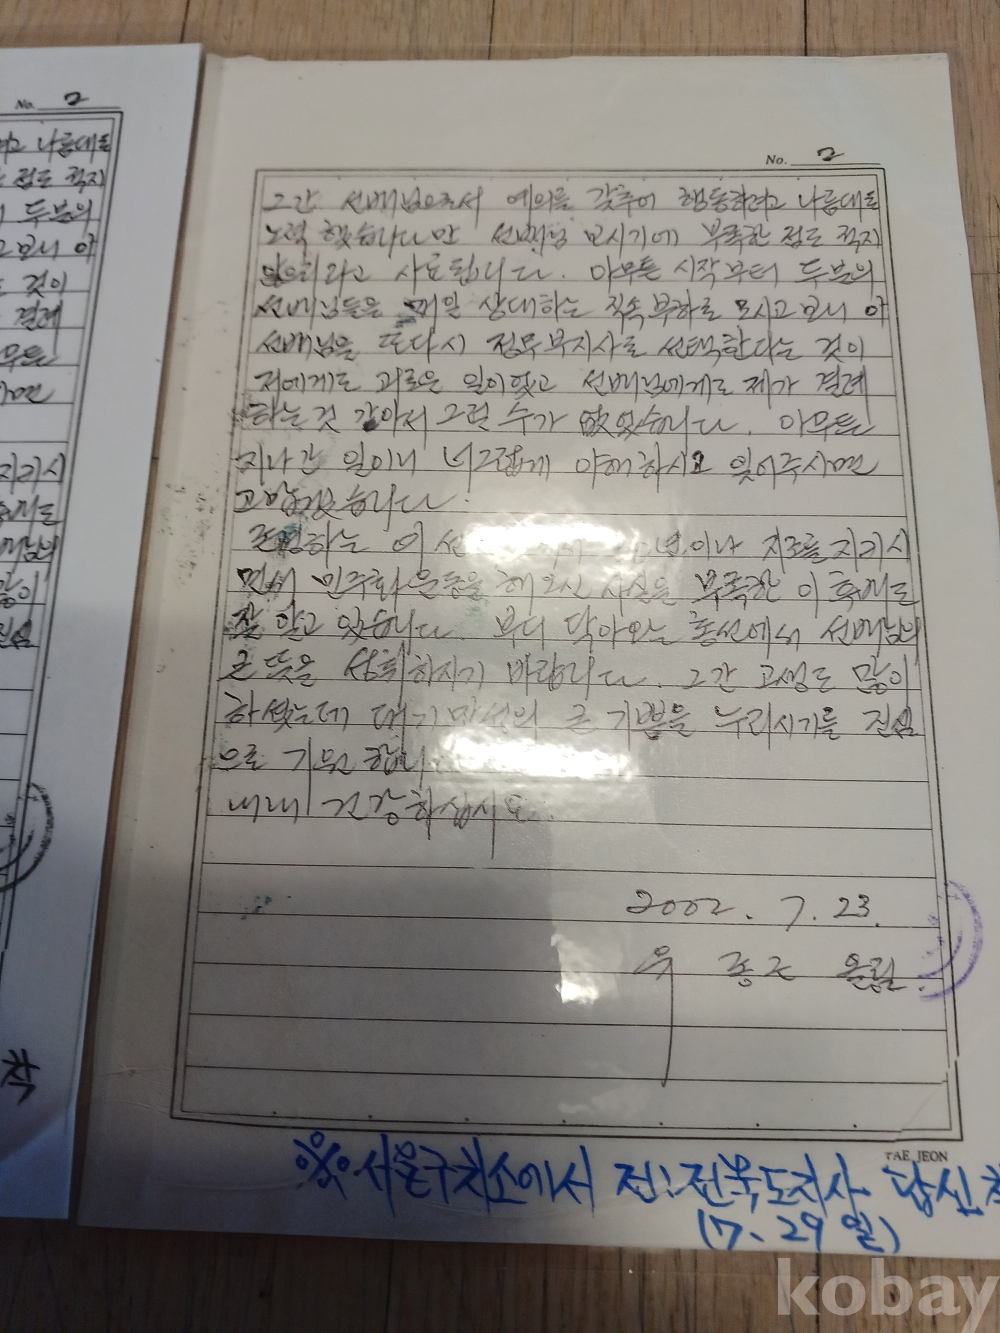 No. 2
그간 선배님으로서 예의를 갖추어 행동하려고 나름대로
노력 했습니다만 선배님 모시기에 부족한 점도 적지
않으리라고 사료됩니다. 아무튼 시작부터 두분의
선배님들을 매일 상대하는 직속부하로 모시고 보니 이
선배님을 또다시 정무부지사로 선택한다는 것이
저에게도 괴로운 일이었고 선배님에게도 제가 결례
하는 것 같아서 그럴 수가 없었습니다. 아무튼
지나간 일이니 너그럽게 이해하시고 잊어주시면
고맙겠습니다.
존경하는 이 이나 지조를 지키시
면서 민주화 운동을 해오신 사실을 부족한 이 후배도
잘 알고 있습니다. 부디 닥아오는 총선에서 선배님의
큰 뜻을 성취하시기 바랍니다. 그간 고생도 많이
하셨는데 대기만성의 큰 기쁨을 누리시기를 진심
으로 기원합니
내내 건강하십시오.
2002. 7. 23.
유종근 올림.
TAE JEON
※서울구치소에서 전:전북도지사 답신
(7. 29일)
No. 2
나름대로
점도 적지
두분의
고 보니 이
것이
결례
아무튼
지키시
후배도
선배님의
많이
진심
착
kobay